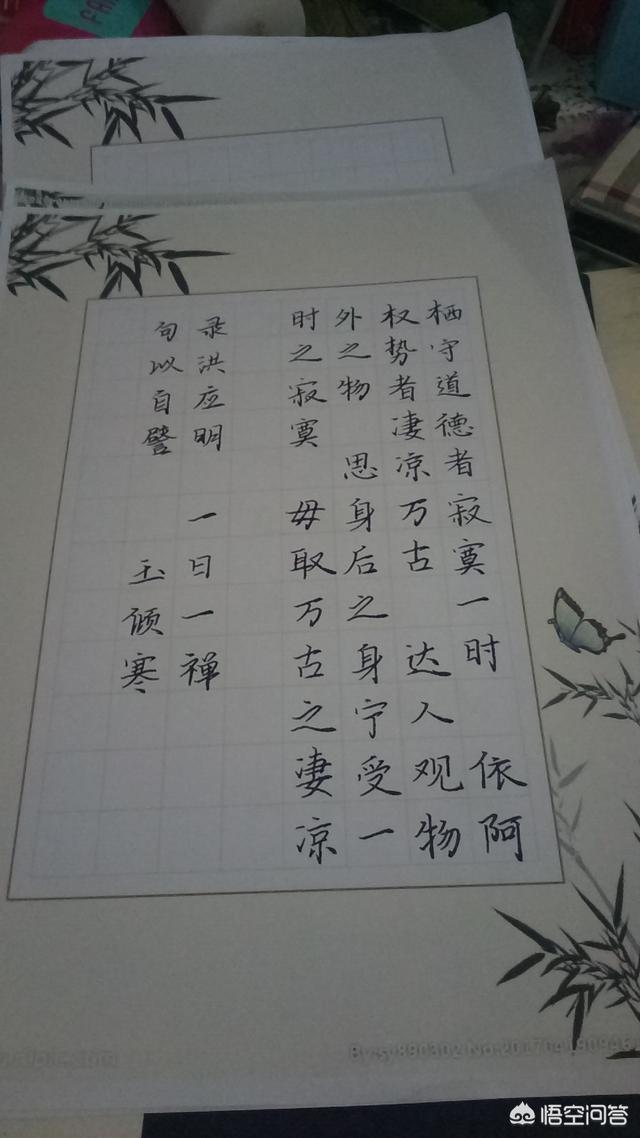 栖守道德者寂寞一时 依阿
权势者凄凉万古 达人观物
外之物 思身后之身宁受一
时之寂寞 毋取万古之凄凉
录洪应明 一日一禅
句以自譬 玉倾寒
By:sy890302 No:201704190946
悟空问答